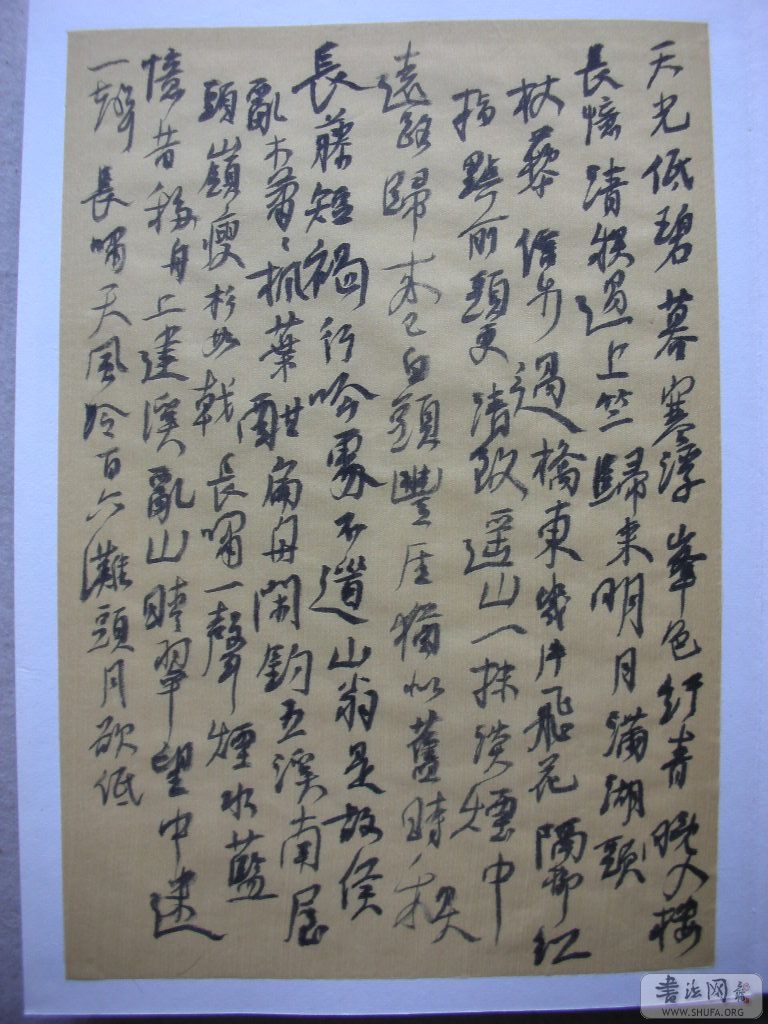 天光低碧暮寒浮峯色紆青晚入樓
長憶清過上竺歸來明月滿湖頭
杖藜信步過橋東幾片飛花隔紅
指點前頭更清致遥山一抹淡煙中
遠路歸來已白頭豐厓猶似舊時
長藤短褐行吟處不道山翁是故侯
亂木蕭〻楓葉酣扁舟閑釣五溪南屋
頭嶺瘦杉如戟長嘯一聲煙水藍
憶昔移舟上建溪亂山晴翠望中迷
一聲長嘯天風冷百六灘頭月欲低
書法网
WWW.SHUFA.ORG